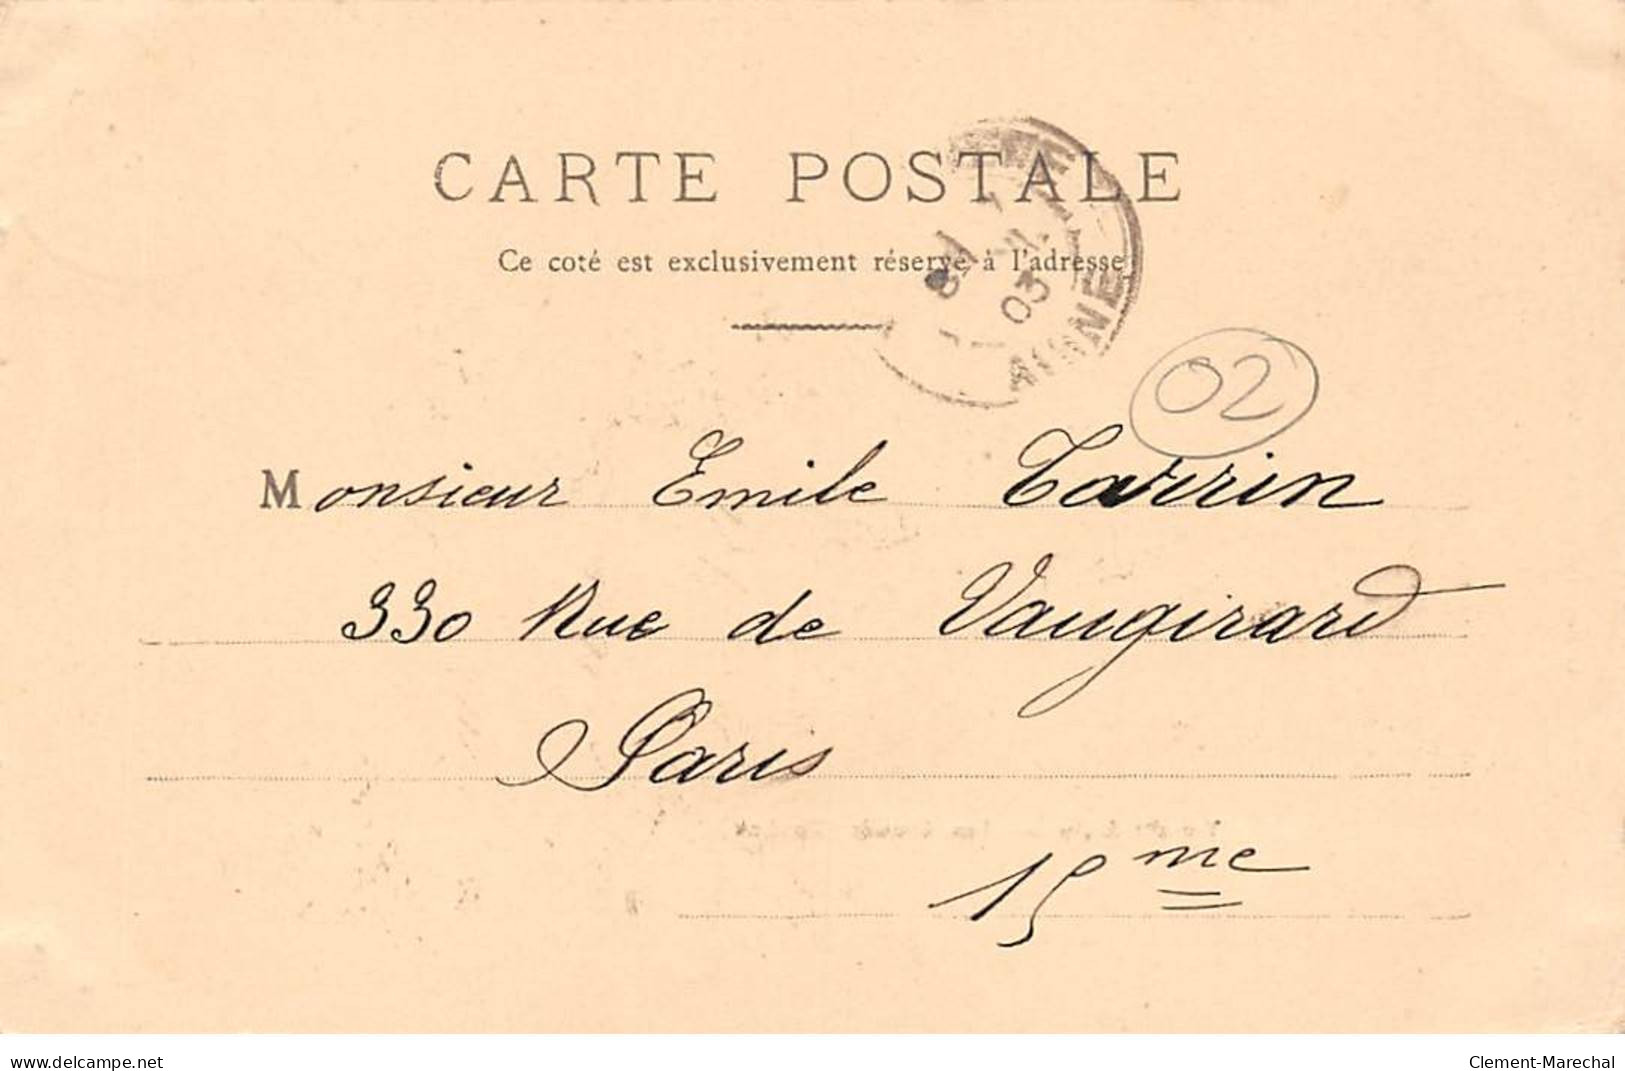 CARTE POSTALE
Ce coté est exclusivement réservé à l'adresse
03
AISNE
02
Monsieur Emile Tarrin
330 Rue de Vaugirard
Paris
15me
www.delcampe.net
Clement-Marechal